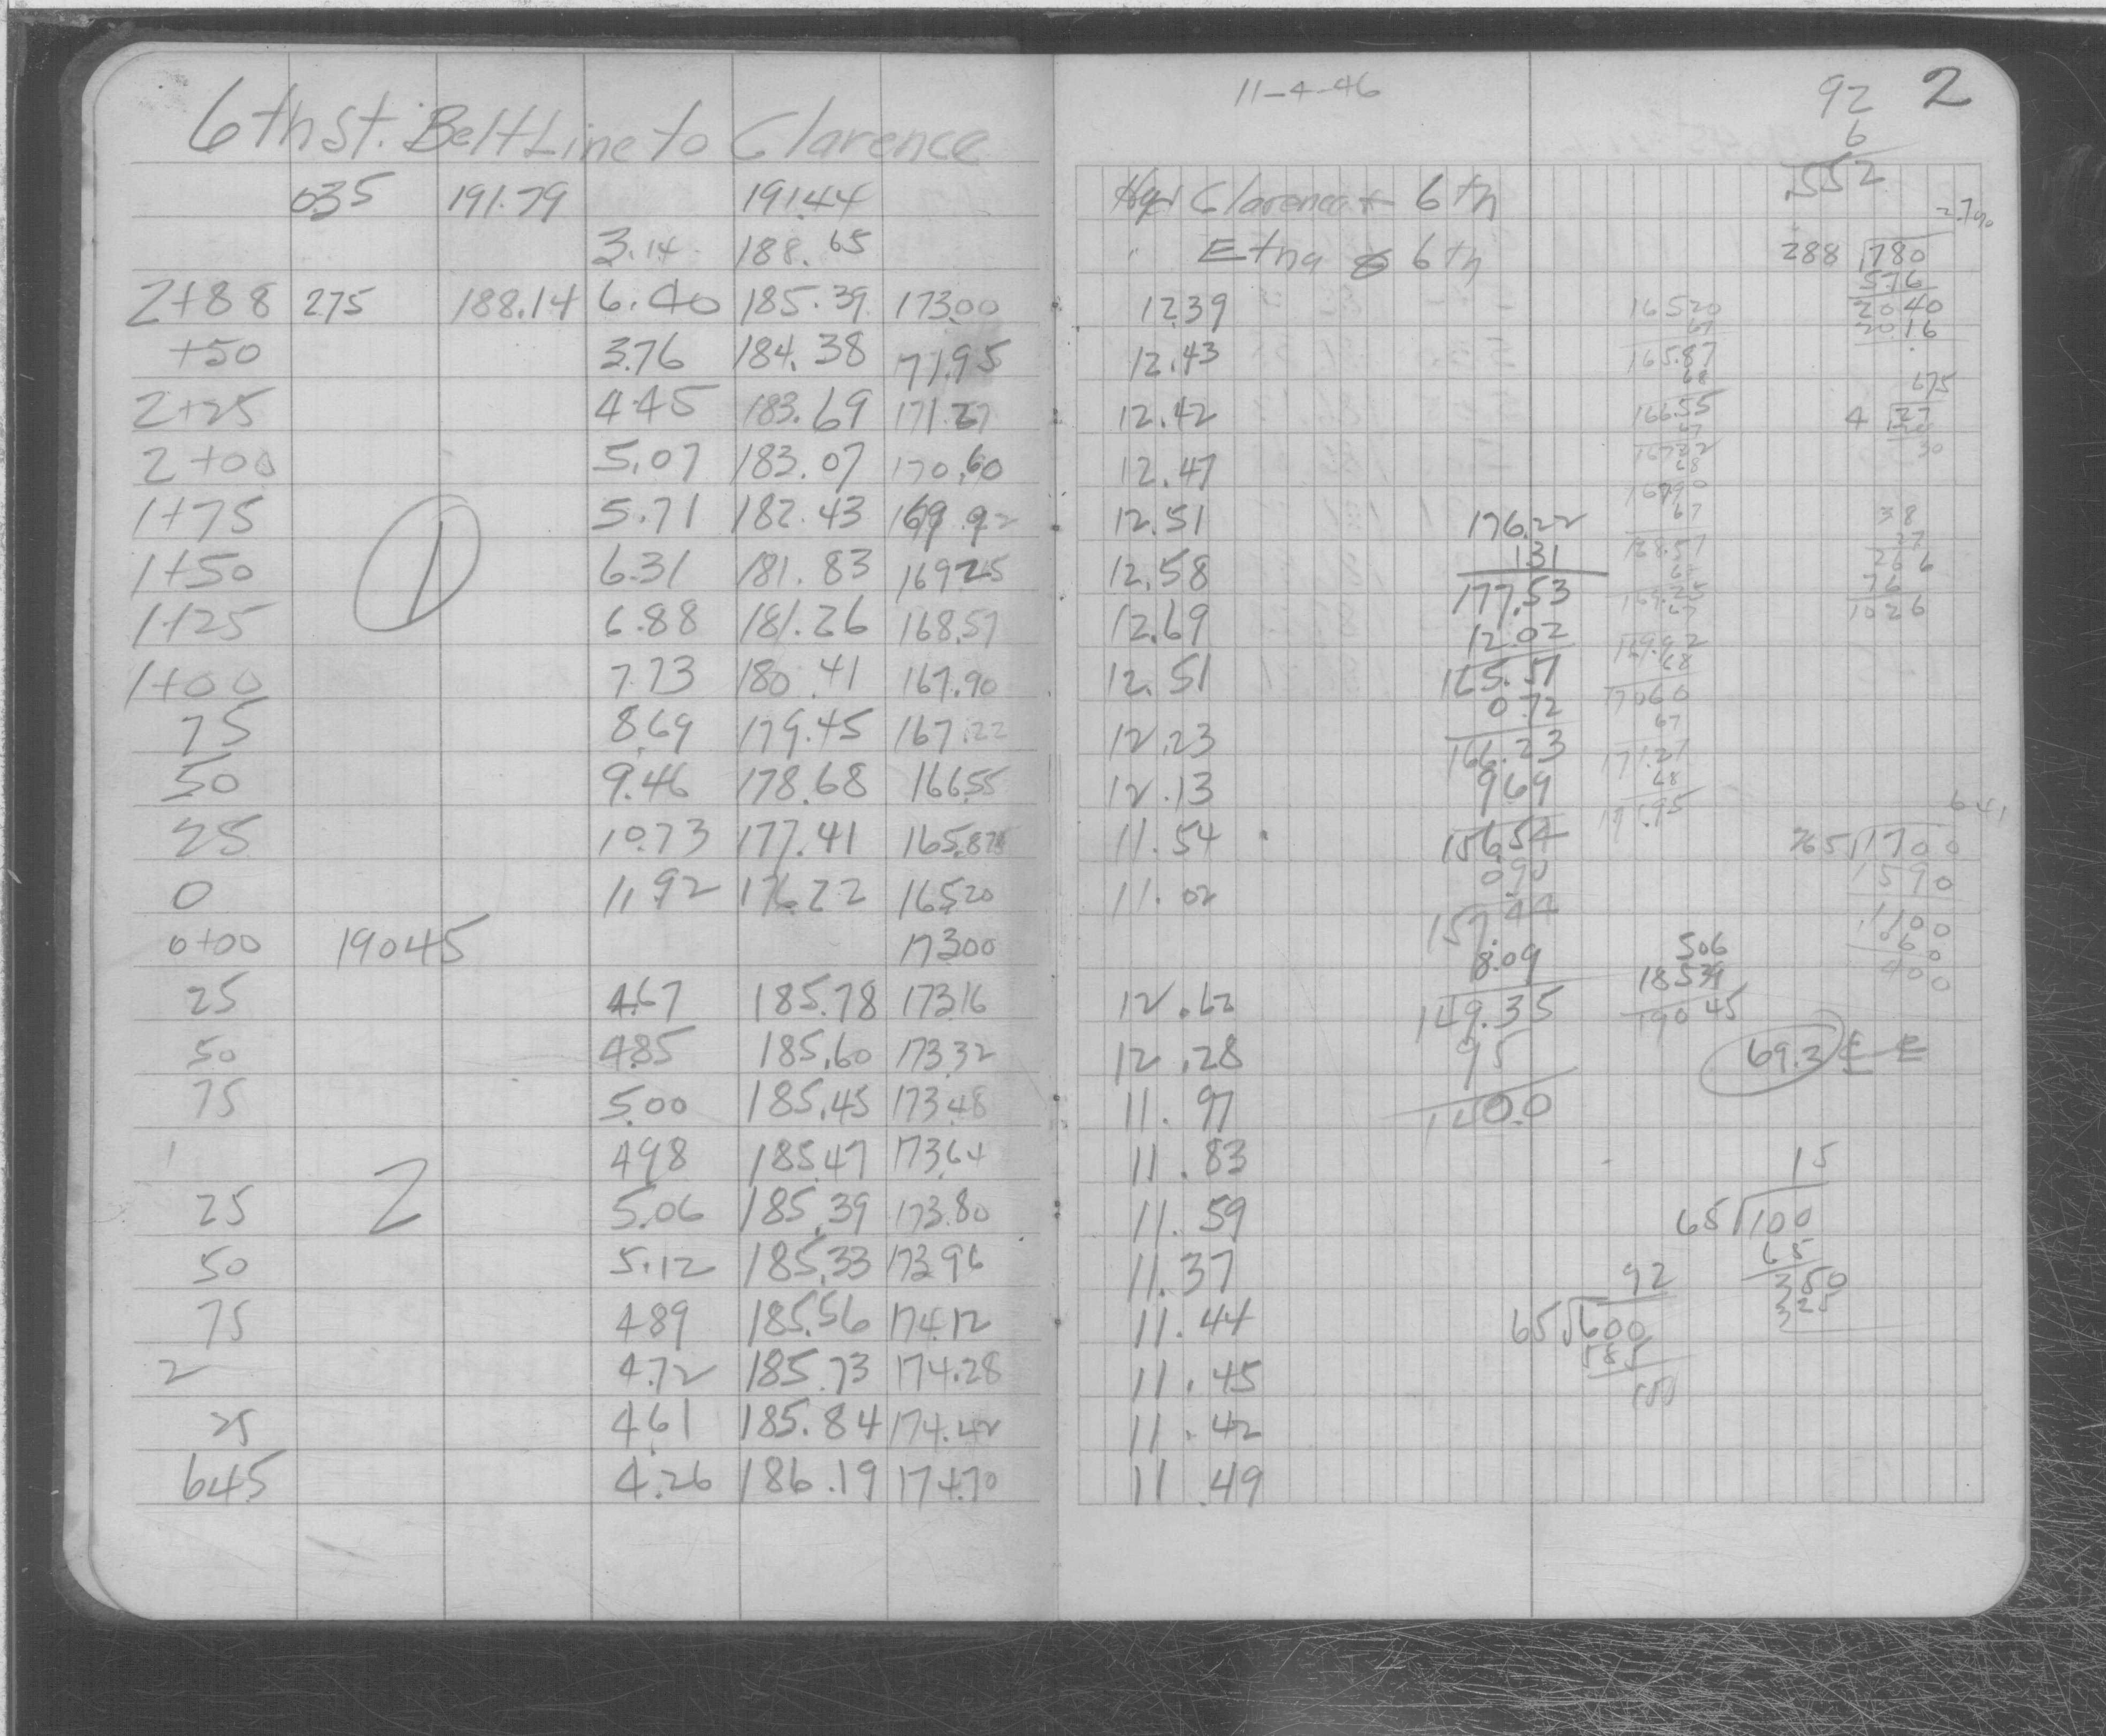 6th St. Belt Line to Clarence
035 191.79 191.44
3.14 188.65
2+88 275 188.14 6.40 185.39 173.00
+50 3.76 184.38 171.95
2+25 4.45 183.69 171.27
2+00 5.07 183.07 170.60
1+75 5.71 182.43 169.92
1+50 6.31 181.83 169.25
1+25 6.88 181.26 168.57
1+00 7.73 180.41 167.90
75 8.69 179.45 167.22
50 9.46 178.68 166.55
25 10.73 177.41 165.875
0 11.92 176.22 165.20
0+00 190.45 173.00
25 4.67 185.78 173.16
50 4.85 185.60 173.32
75 5.00 185.45 173.48
1 4.98 185.47 173.64
25 5.06 185.39 173.80
50 5.12 185.33 173.96
75 4.89 185.56 174.12
2 4.72 185.73 174.28
25 4.61 185.84 174.42
645 4.26 186.19 174.70
1
2
11-4-46
2
Clarence + 6th
" Etna & 6th
12.39
12.43
12.42
12.47
12.51
12.58
12.69
12.51
12.23
12.13
11.54
11.02
12.62
12.28
11.97
11.83
11.59
11.37
11.44
11.45
11.42
11.49
176.22
1.31
177.53
12.02
165.51
0.72
166.23
9.69
156.54
0.90
157.44
8.09
149.35
95
140.0
165.20
67
165.87
68
166.55
67
167.22
68
167.90
67
168.57
169.25
67
169.92
68
170.60
67
171.27
68
171.95
506
185.39
190.45
92
6
.552
2.70
288 780
576
2040
2016
675
4 27
30
38
27
266
76
1026
641
265 1700
1590
1100
1060
400
69.3
15
65 100
65
350
325
92
65 600
585
150